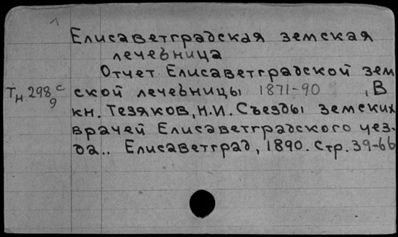 Елисаветградская земская
лечебница
Отчет Елисаветградской зем
ской лечебницы 1871-90 , В
Тн 298 с/9
кн. Тезяков, Н.И. Съезды земских
врачей Елисаветградского уез-
да.. Елисаветград, 1890. Стр. 39-66